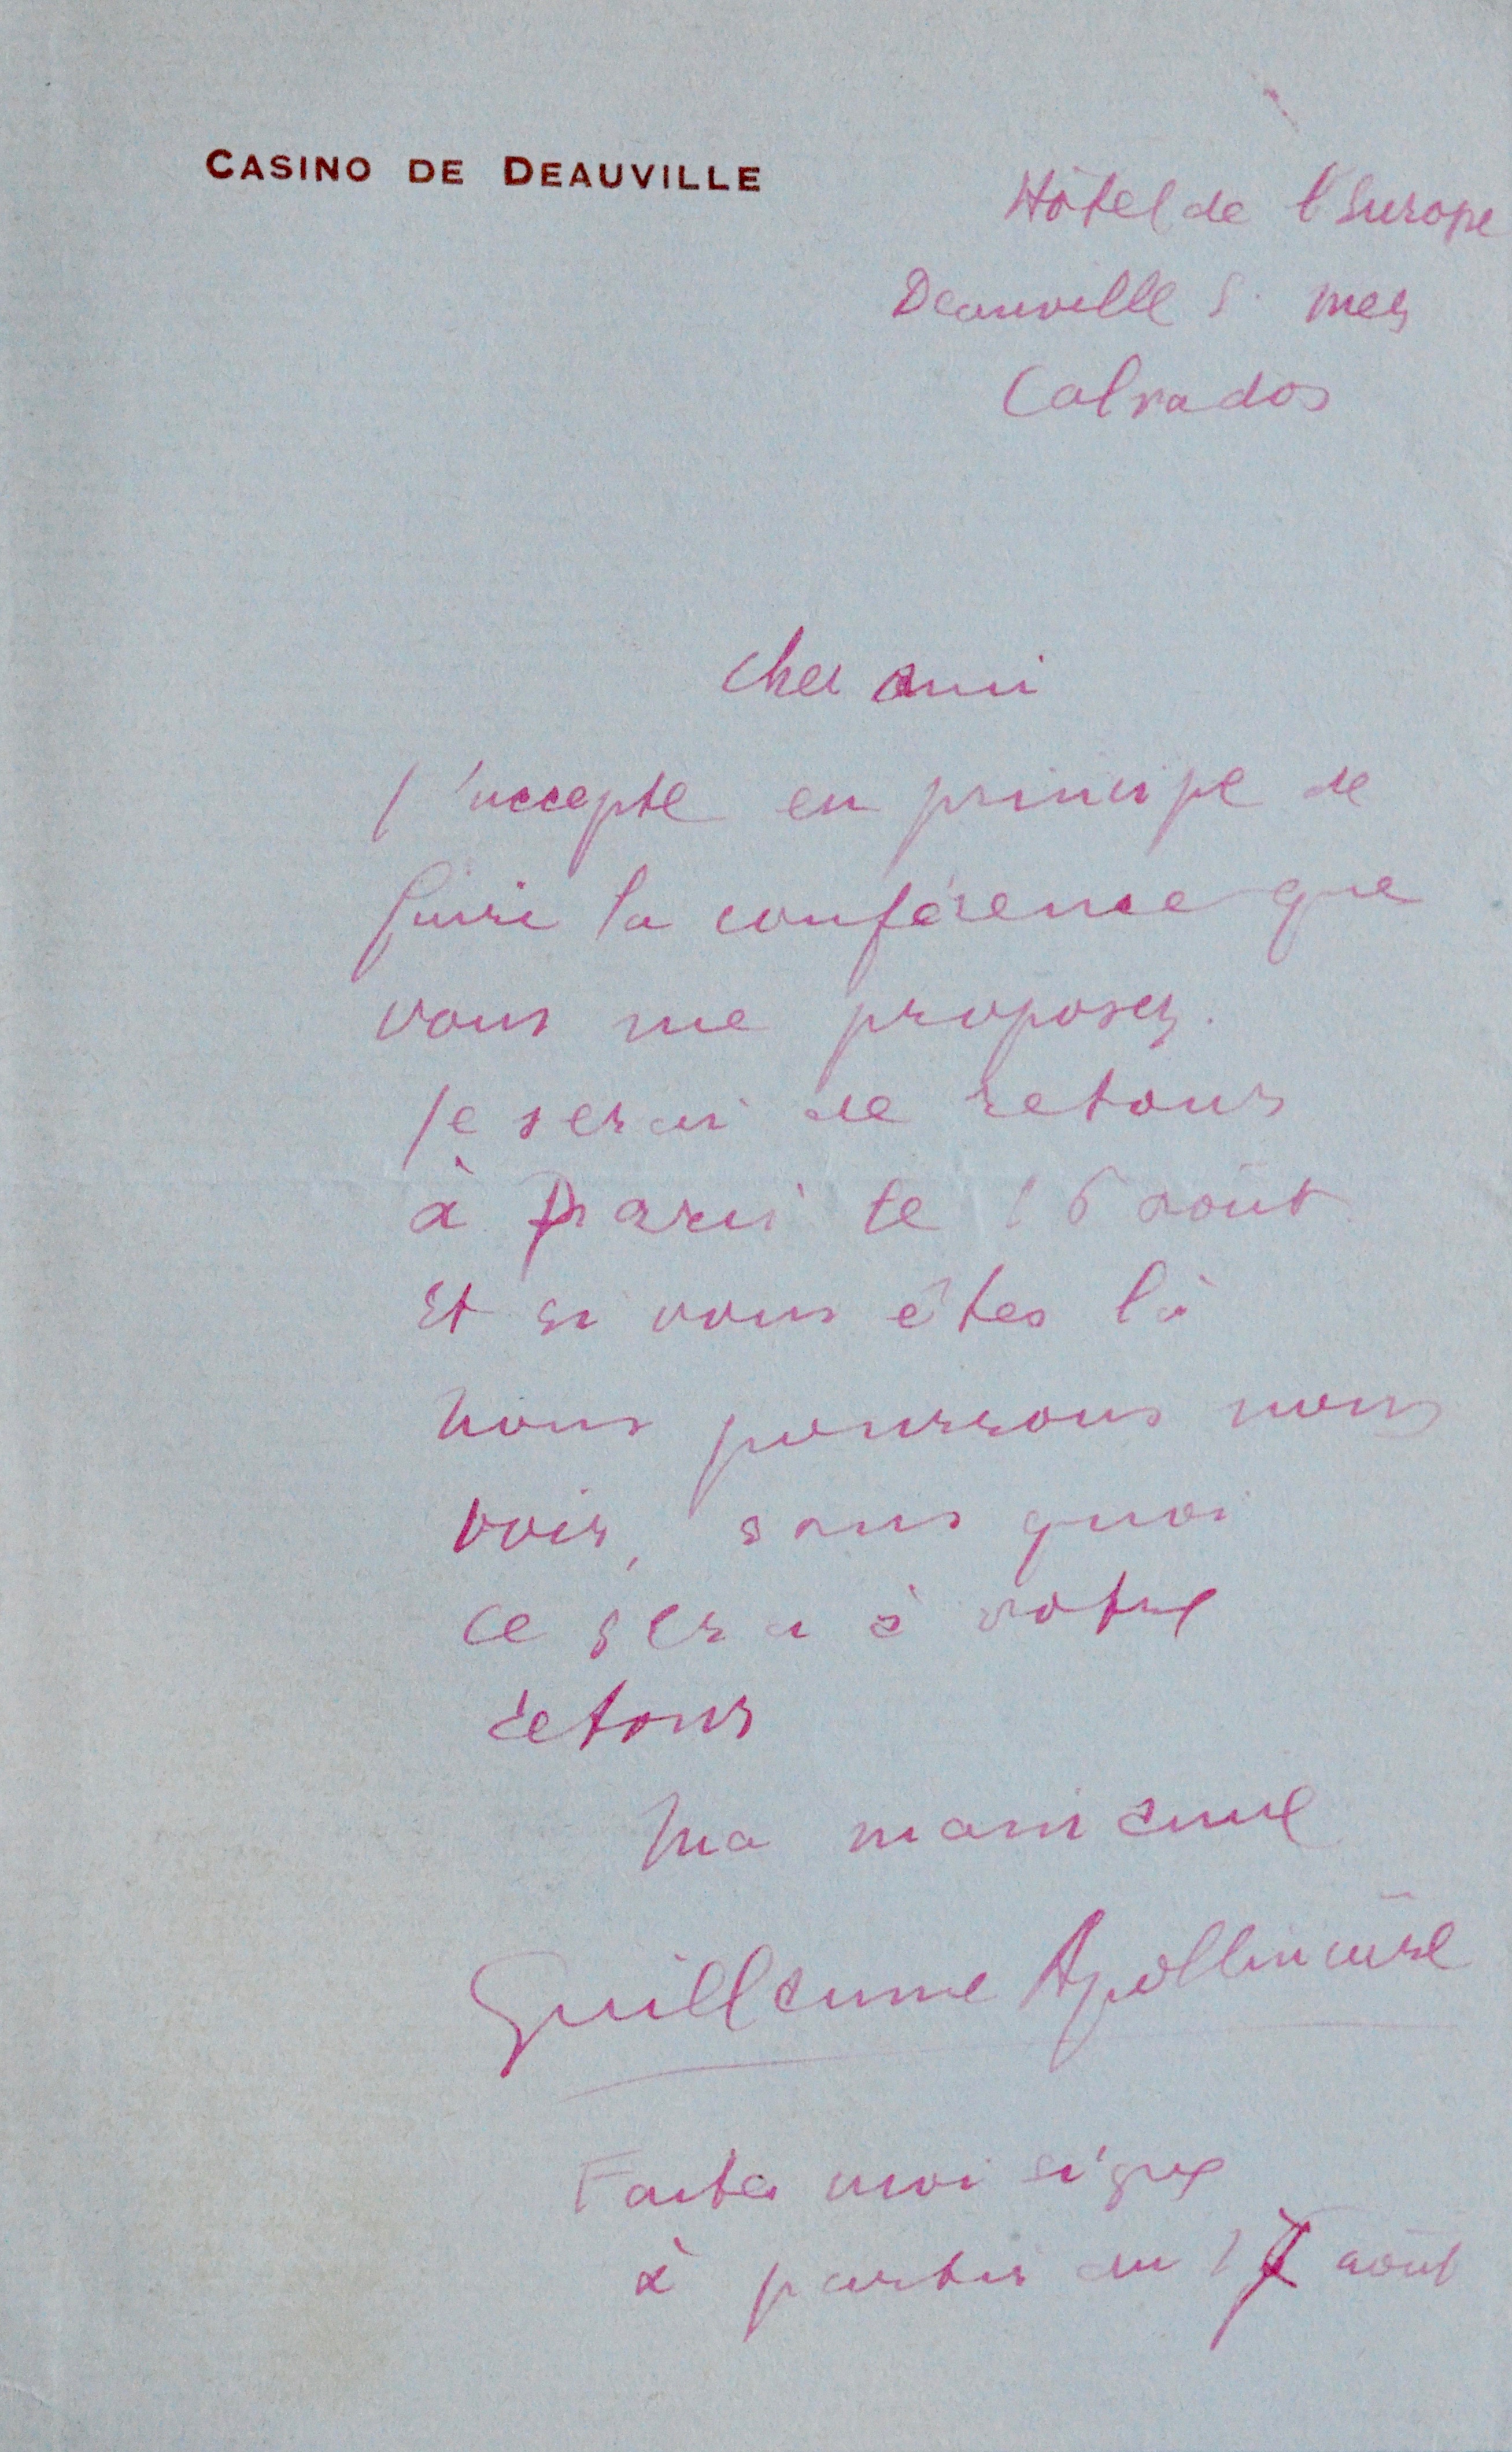 CASINO DE DEAUVILLE
Hôtel de l'Europe
Deauville s. mer
Calvados
Cher ami
J'accepte en principe de
faire la conférence que
vous me proposez.
Je serai de retour
à Paris le 16 août
Et si vous êtes là
nous pourrons nous
voir, sans quoi
ce sera à votre
retour
Ma main amie
Guillaume Apollinaire
Faites moi signe
à partir du 17 août